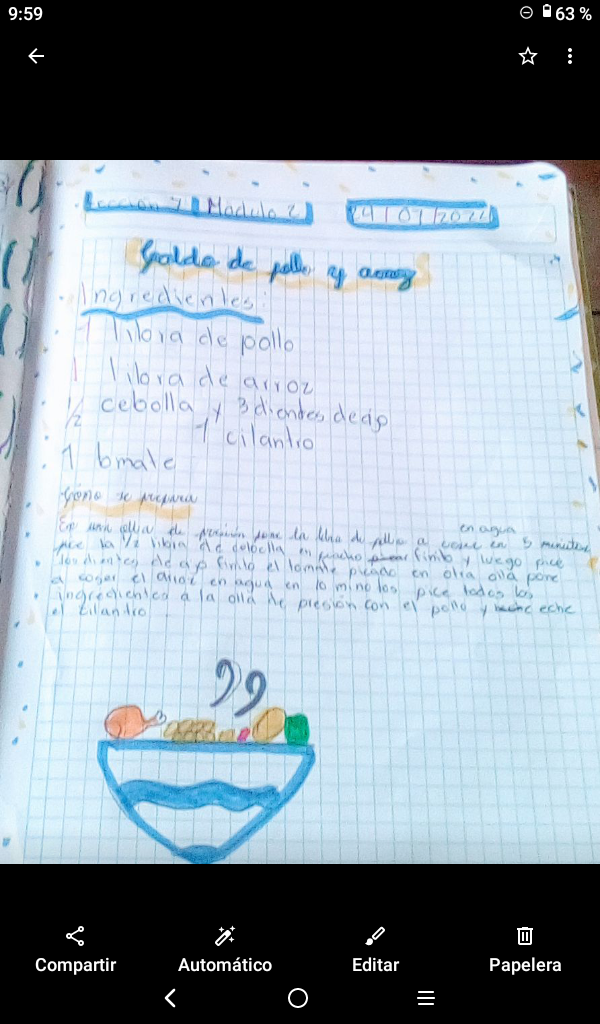 9:59
63 %
Lección 7 Módulo 2
Caldo de pollo y arroz
Ingredientes:
1 libra de pollo
1 libra de arroz
1/2 cebolla y 3 dientes de ajo
1 cilantro
1 tomate
Cómo se prepara
En una olla de presión pone la libra de pollo a coser en 5 minutos
en agua
pice la 1/2 libra de cebolla en finito y luego pice
los dientes de ajo finito el tomate picado en otra olla pone
a coser el arroz en agua en 10 minutos pice todos los
ingredientes a la olla de presión con el pollo y eche
el cilantro
Compartir
Automático
Editar
Papelera